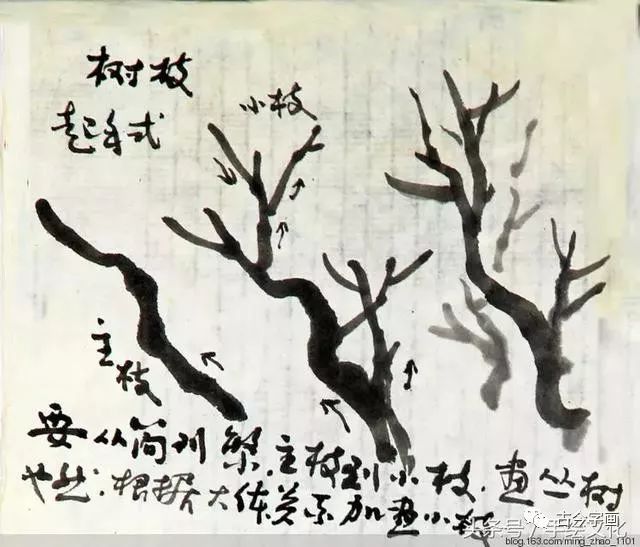 树枝
起手式
小枝
主枝
要从简到繁.主枝到小枝.画丛树
也然.根据大体关系加画小树
古公字画
头条号/手绘文化
blog.163.com/ming_zhao_1101